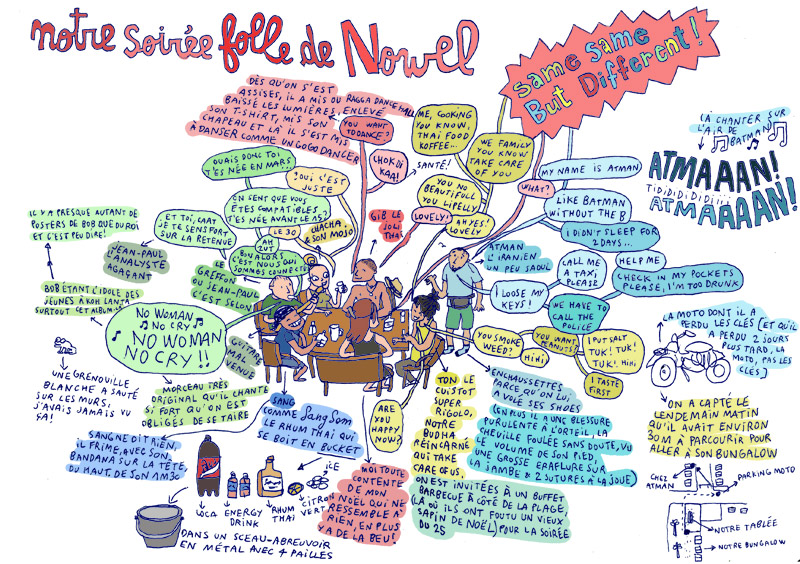 notre soirée folle de Nowel
Same Same
But Different!
DÈS QU'ON S'EST
ASSISES, IL A MIS DU RAGGA DANCE HALL
BAISSÉ LES LUMIÈRES, ENLEVÉ
SON T-SHIRT, MIS SON
CHAPEAU ET LÀ IL S'EST MIS
À DANSER COMME UN GOGO DANCER
YOU WANT
TO DANCE?
CHOK DI
KAA!
SANTÉ!
ME, COOKING
YOU KNOW,
THAI FOOD,
KOFFEE...
WE FAMILY
YOU KNOW
TAKE CARE
OF YOU
YOU NO
BEAUTIFULL
YOU LIPELLE
LOVELY!
AH YES!
LOVELY
GIB LE
JOLI
THAI
MY NAME IS ATMAN
WHAT?
LIKE BATMAN
WITHOUT THE B
I DIDN'T SLEEP FOR
2 DAYS...
LA CHANTER SUR
L'AIR DE
BATMAN
ATMAAAN!
TIDIDIDIDIDIiii
ATMAAAAAN!
OUAIS DONC TOI
T'ES NÉE EN MARS...
OUI C'EST
JUSTE
ON SENT QUE VOUS
ÊTES COMPATIBLES!
T'ES NÉE AVANT LE 15?
ET TOI, LAAT
JE TE SENS FORT
SUR LA RETENUE
LE 30
AH
ZUT!
CHACHA
& SON MOJO
BON ALORS
C'EST NOUS QUI
SOMMES CONNECTÉS
LE
GREFFON
DU JEAN-PAUL
C'EST SELON
JEAN-PAUL
L'ANALYSTE
AGAÇANT
IL Y A PRESQUE AUTANT DE
POSTERS DE BOB QUE DU ROI
ET C'EST PEU DIRE!
BOB ÉTANT L'IDOLE DES
JEUNES À KOH LANTA
SURTOUT CET ALBUM-LÀ
NO WOMAN
NO CRY
NO WOMAN
NO CRY!!
GUITARE
MAL
VENUE
MORCEAU TRÈS
ORIGINAL QU'IL CHANTE
SI FORT QU'ON EST
OBLIGÉS DE SE TAIRE
UNE GRENOUILLE
BLANCHE A SAUTÉ
SUR LES MURS,
J'AVAIS JAMAIS VU
ÇA!
ATMAN
L'IRANIEN
UN PEU SAOUL
CALL ME
A TAXI
PLEASE
HELP ME
CHECK IN MY POCKETS
PLEASE, I'M TOO DRUNK
I LOOSE MY
KEYS!
WE HAVE TO
CALL THE
POLICE
YOU SMOKE
WEED?
HIHI
YOU WANT
PEANUTS?
I PUT SALT
TUK! TUK!
TUK! HIHI
I TASTE
FIRST
LA MOTO DONT IL A
PERDU LES CLÉS (ET QU'IL
A PERDU 2 JOURS
PLUS TARD, LA
MOTO, PAS LES
CLÉS)
ON A CAPTÉ LE
LENDEMAIN MATIN
QU'IL AVAIT ENVIRON
30M À PARCOURIR POUR
ALLER À SON BUNGALOW
CHEZ
ATMAN
PARKING MOTO
NOTRE TABLÉE
NOTRE BUNGALOW
EN CHAUSSETTES
PARCE QU'ON LUI
A VOLÉ SES SHOES
(EN PLUS IL A UNE BLESSURE
PURULENTE À L'ORTEIL, LA
CHEVILLE FOULÉE SANS DOUTE, VU
LE VOLUME DE SON PIED,
UNE GROSSE ÉRAFLURE SUR
LA JAMBE & 2 SUTURES À LA JOUE)
TON LE
CUISTOT
SUPER
RIGOLO,
NOTRE
BUDHA
RÉINCARNÉ
QUI TAKE
CARE OF US
ARE
YOU
HAPPY
NOW?
ON EST INVITÉES À UN BUFFET
BARBECUE À CÔTÉ DE LA PLAGE
(LÀ OÙ ILS ONT FOUTU UN VIEUX
SAPIN DE NOËL) POUR LA SOIRÉE
DU 25
MOI TOUTE
CONTENTE
DE MON
NOËL QUI NE
RESSEMBLE À
RIEN, EN PLUS
Y A DE LA BEU!
SANG
COMME SangSom
LE RHUM THAI QUI
SE BOIT EN BUCKET
SANG NE DIT RIEN,
IL FRIME, AVEC SON
BANDANA SUR LA TÊTE,
DU HAUT DE SON AM30
LOCA
ENERGY
DRINK
RHUM
THAI
CITRON
VERT
DANS UN SCEAU-ABREUVOIR
EN MÉTAL AVEC 4 PAILLES